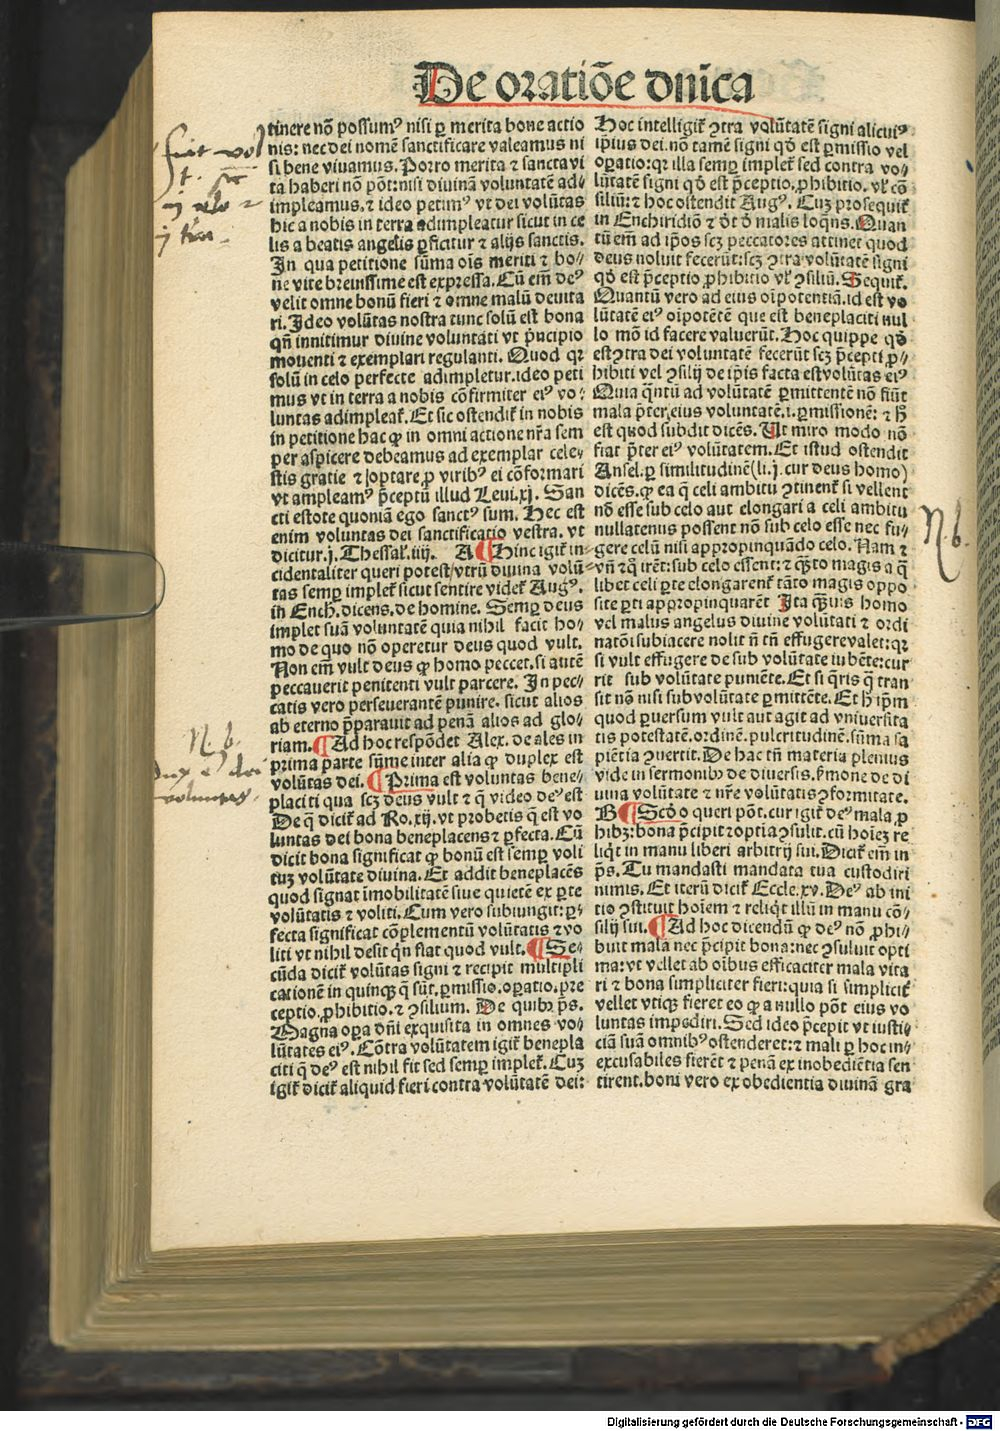 De oratiõe dnĩca
tinere nõ possumꝰ nisi ꝑ merita bone actio
nis: nec dei nomẽ sanctificare valeamus ni
si bene viuamus. Porro merita ⁊ sancta vi
ta haberi nõ põt: nisi diuinã voluntatẽ ad⸗
impleamus. ⁊ ideo petimꝰ vt dei volũtas
hic a nobis in terra adimpleatur sicut in ce
lis a beatis angelis ꝑficitur ⁊ alijs sanctis.
In qua petitione sũma oĩs meriti ⁊ bo⸗
ne vite breuissime est expressa. Cũ em̃ deꝰ
velit omne bonũ fieri ⁊ omne malũ deuita
ri. Ideo volũtas nostra tunc solũ est bona
qñ innitimur diuine voluntati vt p̃ncipio
mouenti ⁊ exemplari regulanti. Quod qꝛ
solũ in celo perfecte adimpletur. ideo peti
mus vt in terra a nobis cõfirmiter eiꝰ vo⸗
luntas adimpleaṫ. Et sic ostendiṫ in nobis
in petitione hac ꝙ in omni actione nr̃a sem
per aspicere debeamus ad exemplar cele⸗
stis gratie ⁊ optare ꝓ viribꝰ ei cõformari
vt ampleamꝰ p̃ceptũ illud Leui. xj. San
cti estote quoniã ego sanctꝰ sum. Hec est
enim voluntas dei sanctificatio vestra. vt
dicitur. j. Thessal̃. iiij. A ¶ Hinc igiṫ in⸗
cidentaliter queri potest vtrũ diuina volũ⸗
tas semꝑ impleṫ sicut sentire videṫ Augꝰ.
in Ench. dicens. de homine. Semꝑ deus
implet suã voluntatẽ quia nihil facit ho⸗
mo de quo nõ operetur deus quod vult.
Non em̃ vult deus ꝙ homo peccet. si autẽ
peccauerit penitenti vult parcere. In pec⸗
catis vero perseuerantẽ punire. sicut alios
ab eterno p̃parauit ad penã alios ad glo⸗
riam. ¶ Ad hoc respõdet Alex. de ales in
prima parte sũme inter alia ꝙ duplex est
volũtas dei. ¶ Prima est voluntas bene⸗
placiti qua scꝫ deus vult ⁊ q̃ video deꝰ est
De q̃ diciṫ ad Ro. xij. vt probetis q̃ est vo
luntas dei bona beneplacens ⁊ ꝑfecta. Cũ
dicit bona significat ꝙ bonũ est semꝑ voli
tuꝫ volũtate diuina. Et addit beneplacẽs
quod signat ĩmobilitatẽ siue quietẽ ex ꝑte
volũtatis ⁊ voliti. Cum vero subiungit: ꝑ⸗
fecta significat cõplementũ volũtatis ⁊ vo
liti vt nihil desit q̃n fiat quod vult. ¶ Se⸗
cũda diciṫ volũtas signi ⁊ recipit multipli
cationẽ in quinqꝫ q̃ sũt. ꝑmissio. oꝑatio. pre
ceptio. ꝓhibitio. ⁊ ꝯsilium. De quibꝫ p̃s.
Magna oꝑa dñi exquisita in omnes vo⸗
lũtates eiꝰ. Cõtra volũtatem igiṫ benepla
citi q̃ deꝰ est nihil fit sed semꝑ impleṫ. Cuꝫ
igiṫ diciṫ aliquid fieri contra volũtatẽ dei:
Hoc intelligiṫ ꝯtra volũtatẽ signi alicuiꝰ
ip̃ius dei. nõ tamẽ signi qḋ est ꝑmissio vel
oꝑatio: qꝛ illa semꝑ impleṫ sed contra vo⸗
lũtatẽ signi qḋ est p̃ceptio. ꝓhibitio. vl̃ cõ
siliũ: ⁊ hoc ostendit Augꝰ. Cuꝫ prosequiṫ
in Enchiridiõ ⁊ ḋt ḋ malis loq̃ns. Quan
tũ em̃ ad ip̃os scꝫ peccatores attinet quod
deus noluit fecerũt: scꝫ ꝯtra volũtatẽ signi
qḋ est p̃ceptio ꝓhibitio vl̃ ꝯsiliũ. Sequiṫ.
Quantũ vero ad eius oĩpotentiã. id est vo
lũtatẽ eiꝰ oĩpotẽtẽ que est beneplaciti nul
lo mõ id facere valuerũt. Hoc quippe qḋ
est ꝯtra dei voluntatẽ fecerũt scꝫ p̃cepti ꝓ⸗
hibiti vel ꝯsilij de ip̃is facta est volũtas eiꝰ
Quia q̃ntũ ad volũtatẽ ꝑmittentẽ nõ fiũt
mala p̃ter eius voluntatẽ. i. ꝑmissionẽ: ⁊ h̃
est quod subdit dicẽs. Ut miro modo nõ
fiat p̃ter eiꝰ volũtatem. Et istud ostendit
Ansel. ꝑ similitudinẽ (li. j. cur deus homo)
dicẽs. ꝙ ea q̃ celi ambitu ꝯtinenṫ si vellent
nõ esse sub celo aut elongari a celi ambitu
nullatenus possent nõ sub celo esse nec fu⸗
gere celũ nisi appropinquãdo celo. Nam ⁊
vñ ⁊ q̃ irẽt: sub celo essent: ⁊ q̃sto magis a q̃
libet celi ꝑte elongarenṫ tãto magis oppo
site ꝑti appropinquarẽt Ita q̃uis homo
vel malus angelus diuine volũtati ⁊ ordi
natõi subiacere nolit ñ tñ effugere valet: qꝛ
si vult effugere de sub volũtate iubẽte: cur
rit sub volũtate puniẽte. Et si q̃ris q̃ tran
sit nõ nisi sub volũtate ꝑmittẽte. Et h̃ ip̃m
quod ꝑuersum vult aut agit ad vniuersita
tis potestatẽ. ordinẽ. pulcritudinẽ. sũma sa
piẽtia ꝯuertit. De hac tñ materia plenius
vide in sermonibꝫ de diuersis. p̃mone de di
uina volũtate ⁊ nr̃e volũtatis ꝯformitate.
B ¶ Scḋo queri põt. cur igiṫ deꝰ mala ꝓ
hibꝫ: bona p̃cipit ⁊ optia ꝯsulit. cũ hoĩeꝫ re
liq̃t in manu liberi arbitrij sui. Diciṫ em̃ in
p̃s. Tu mandasti mandata tua custodiri
nimis. Et iterũ diciṫ Eccle. xv. Deꝰ ab ini
tio ꝯstituit hoĩem ⁊ reliq̃t illũ in manu cõ⸗
silij sui. ¶ Ad hoc dicendũ ꝙ deꝰ nõ ꝓhi⸗
buit mala nec p̃cipit bona: nec ꝯsuluit opti
ma: vt vellet ab oĩbus efficaciter mala vita
ri ⁊ bona simpliciter fieri: quia si simpliciṫ
vellet vtiqꝫ fieret eo ꝙ a nullo põt eius vo
luntas impediri. Sed ideo p̃cepit vt iusti⸗
ciã suã omnibꝰ ostenderet: ⁊ mali ꝑ hoc in⸗
excusabiles fierẽt ⁊ penã ex inobediẽtia sen
tirent. boni vero ex obedientia diuinã gra
N. b.
N. b.
voluntas.
Digitalisierung gefördert durch die Deutsche Forschungsgemeinschaft - DFG